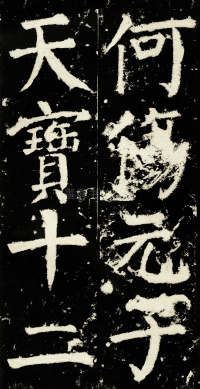 何傷元子
天寶十二